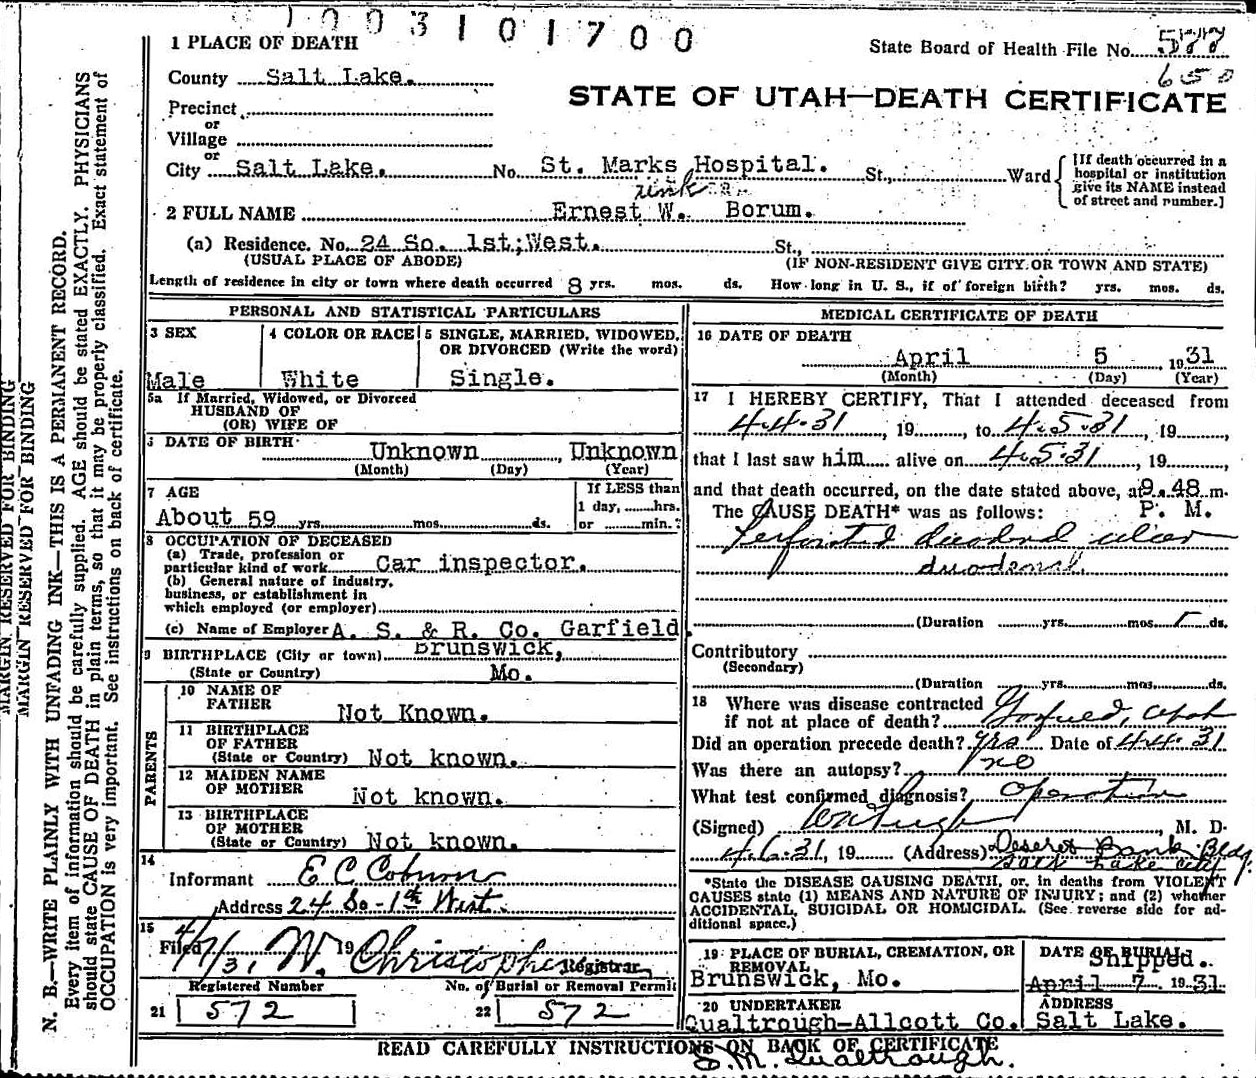 1003101700
1 PLACE OF DEATH
State Board of Health File No. 577
650
County Salt Lake.
STATE OF UTAH—DEATH CERTIFICATE
Precinct
or
Village
or
City Salt Lake. No. St. Marks Hospital. St., Ward
[If death occurred in a hospital or institution give its NAME instead of street and number.]
unk
2 FULL NAME Ernest W. Borum.
(a) Residence. No. 24 So. 1st; West. St.,
(USUAL PLACE OF ABODE) (IF NON-RESIDENT GIVE CITY OR TOWN AND STATE)
Length of residence in city or town where death occurred 8 yrs. mos. ds. How long in U. S., if of foreign birth? yrs. mos. ds.
PERSONAL AND STATISTICAL PARTICULARS
3 SEX
Male
4 COLOR OR RACE
White
5 SINGLE, MARRIED, WIDOWED, OR DIVORCED (Write the word)
Single.
5a If Married, Widowed, or Divorced
HUSBAND OF
(OR) WIFE OF
DATE OF BIRTH Unknown, Unknown
(Month) (Day) (Year)
7 AGE
About 59 yrs. mos. ds.
If LESS than
1 day, hrs.
or min.?
8 OCCUPATION OF DECEASED
(a) Trade, profession or
particular kind of work Car inspector.
(b) General nature of industry,
business, or establishment in
which employed (or employer)
(c) Name of Employer A. S. & R. Co. Garfield.
9 BIRTHPLACE (City or town) Brunswick,
(State or Country) Mo.
PARENTS
10 NAME OF
FATHER Not Known.
11 BIRTHPLACE
OF FATHER
(State or Country) Not known.
12 MAIDEN NAME
OF MOTHER Not known.
13 BIRTHPLACE
OF MOTHER
(State or Country) Not known.
14
Informant E C Coburn
Address 24 So - 1st West.
15
Filed 4/7/31, 19 W. Christophe Registrar
Registered Number No. of Burial or Removal Permit
21 572 22 572
MEDICAL CERTIFICATE OF DEATH
16 DATE OF DEATH
April 5, 1931
(Month) (Day) (Year)
17 I HEREBY CERTIFY, That I attended deceased from
4.4.31, 19, to 4.5.31, 19,
that I last saw him alive on 4.5.31, 19,
and that death occurred, on the date stated above, at 9.48 m.
The CAUSE DEATH* was as follows: P. M.
Perforated duodenal ulcer
duodenal
(Duration yrs. mos. ds.
Contributory
(Secondary)
(Duration yrs. mos. ds.
18 Where was disease contracted
if not at place of death? Garfield, Utah
Did an operation precede death? yes Date of 4.4.31
Was there an autopsy? no
What test confirmed diagnosis? Operation
(Signed) , M. D.
4.6.31, 19 (Address) Deseret Bank Bldg.
Salt Lake City
*State the DISEASE CAUSING DEATH, or, in deaths from VIOLENT
CAUSES state (1) MEANS AND NATURE OF INJURY; and (2) whether
ACCIDENTAL, SUICIDAL OR HOMICIDAL. (See reverse side for ad-
ditional space.)
19 PLACE OF BURIAL, CREMATION, OR
REMOVAL
Brunswick, Mo.
DATE OF BURIAL
Shipped.
April 7 1931
20 UNDERTAKER
Qualtrough-Allcott Co.
ADDRESS
Salt Lake.
READ CAREFULLY INSTRUCTIONS ON BACK OF CERTIFICATE
S. M. Qualtrough.
MARGIN RESERVED FOR BINDING
MARGIN RESERVED FOR BINDING
N. B.—WRITE PLAINLY WITH UNFADING INK—THIS IS A PERMANENT RECORD.
Every item of information should be carefully supplied. AGE should be stated EXACTLY. PHYSICIANS
should state CAUSE OF DEATH in plain terms, so that it may be properly classified. Exact statement of
OCCUPATION is very important. See instructions on back of certificate.